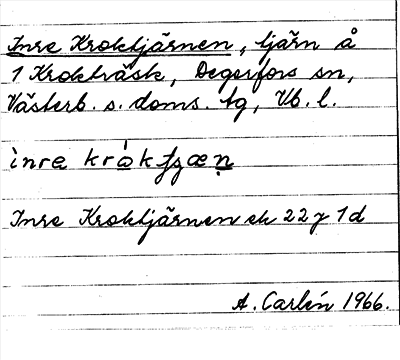 Inre Kroktjärnen, tjärn å
1 Krokträsk, Degerfors sn,
Västerb. s. doms. tg, Vb. l.
Inre Kroktjärnen ek 22 j 1 d
A. Carlén 1966.